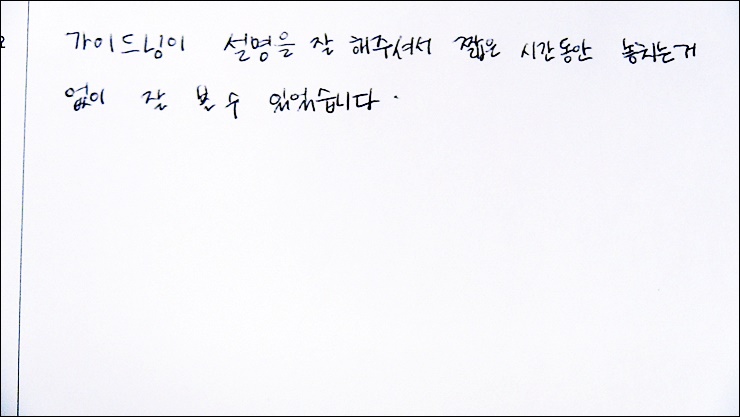 가이드님이 설명을 잘 해주셔서 짧은 시간동안 놓치는거
없이 잘 볼 수 있었습니다.